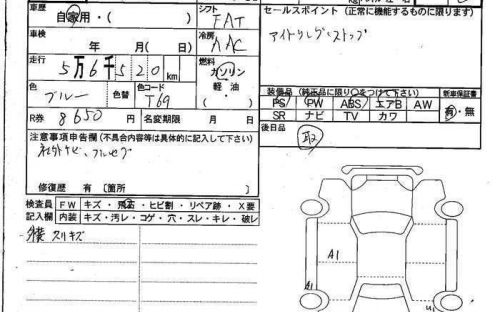 車歴 自家用・( )
シフト FAT
車検 年 月( )
冷房 AAC
走行 5万6千520km
燃料 ガソリン 軽油 ・( )
色 ブルー 色替 色コード T69
R券 8650 円 名変期限 月 日
セールスポイント(正常に機能するものに限ります)
アイドリングストップ
装備品(純正品に限り○をつけて下さい) 新車保証書
PS PW ABS エアB AW 有・無
SR ナビ TV カワ
後日品 取
注意事項申告欄(不具合内容等は具体的に記入して下さい)
社外ナビ、フルセグ
修復歴 有 〔箇所
検査員記入欄
FW キズ・飛石・ヒビ割・リペア跡・X要
内装 キズ・汚レ・コゲ・穴・スレ・キレ・破レ
スリキズ
A1
A1
U1